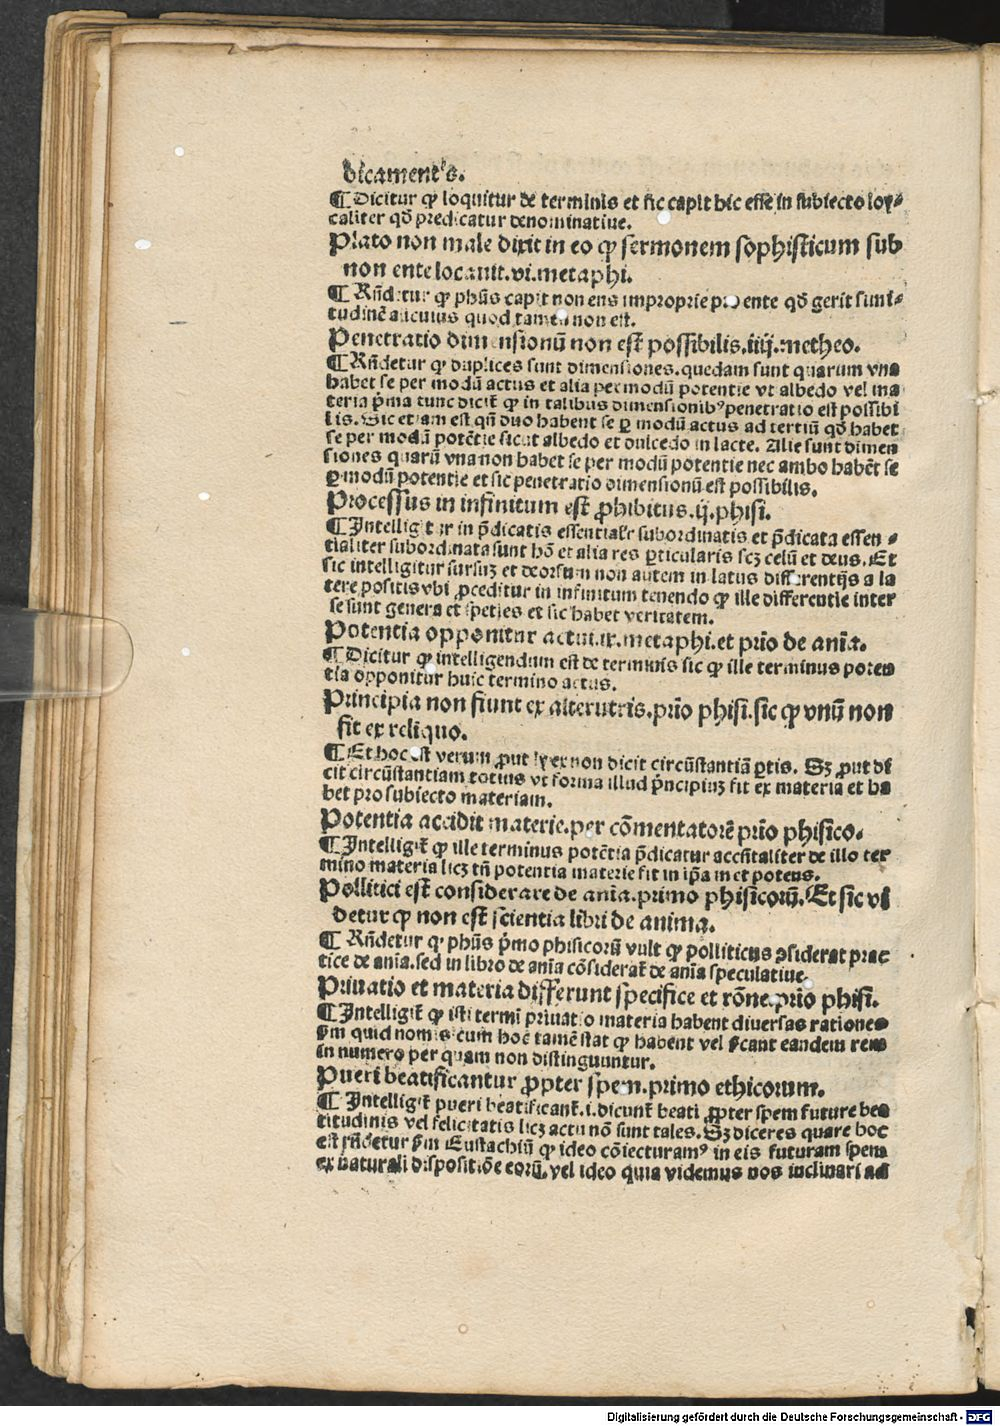 dicament᷒s.
¶ Dicitur ꝙ loquitur de terminis et sic capit hic esse in subiecto loy⸗
caliter qđ predicatur denominatiue.
Plato non male dixit in eo ꝙ sermonem sophisticum sub
non ente locauit.vi.metaphi.
¶ Rn̄detur ꝙ ph̄us capit non ens improprie pro ente qđ gerit simi⸗
tudinē alicuius quod tamen non est.
Penetratio dimensionū non est possibilis.iiij.metheo.
¶ Rn̄detur ꝙ duplices sunt dimensiones.quedam sunt quarum vna
habet se per modū actus et alia per modū potentie vt albedo vel ma
teria p̄ma tunc dicit̄ ꝙ in talibus dimensionibꝰ penetratio est possibi
lis. Sic etiam est qn̄ duo habent se ꝑ modū actus ad tertiū qđ habet
se per modū potētie sicut albedo et dulcedo in lacte. Alie sunt dimen
siones quarū vna non habet se per modū potentie nec ambo habēt se
ꝑ modū potentie et sic penetratio dimensionū est possibilis.
Processus in infinitum est ꝓhibitus.ij.phisi.
¶ Intelligitur in p̄dicatis essentialr̄ subordinatis et p̄dicata essen⸗
tialiter subordinata sunt hō et alia res ꝑticularis scꝫ celū et deus. Et
sic intelligitur sursuꝫ et deorsum non autem in latus differentijs a la
tere positis vbi ꝓceditur in infinitum tenendo ꝙ ille differentie inter
se sunt genera et speties et sic habet veritatem.
Potentia opponitur actui.ix.metaphi.et prīo de anīa.
¶ Dicitur ꝙ intelligendum est de terminis sic ꝙ ille terminus poten
tia opponitur huic termino actus.
Principia non fiunt ex alterutris.prīo phisi.sic ꝙ vnū non
fit ex reliquo.
¶ Et hoc est verum ꝓut ly ex non dicit circūstantiā ꝑtis. Sꝫ ꝓut di
cit circūstantiam totius vt forma illud p̄ncipiuꝫ fit ex materia et ha
bet pro subiecto materiam.
Potentia accidit materie.per cōmentatorē prīo phisico.
¶ Intelligit̄ ꝙ ille terminus potētia p̄dicatur accn̄taliter de illo ter
mino materia licꝫ tn̄ potentia materie fit in ip̄a met potens.
Pollitici est considerare de anīa.primo phisicorū. Et sic vi
detur ꝙ non est scientia libri de anima.
¶ Rn̄detur ꝙ ph̄us p̄mo phisicorū vult ꝙ polliticus ɔsiderat prac
tice de anīa.sed in libro de anīa cōsiderat̄ de anīa speculatiue.
Priuatio et materia differunt specifice et rōne.prīo phisi.
¶ Intelligit̄ ꝙ isti termi priuatio materia habent diuersas rationes
ẜm quid nominis cum hoc tamē stat ꝙ habent vel ẜcant eandem rem
in numero per quam non distinguuntur.
Pueri beatificantur ꝓpter spem.primo ethicorum.
¶ Intelligit̄ pueri beatificant̄.i.dicunt̄ beati ꝓpter spem future bea
titudinis vel felicitatis licꝫ actu nō sunt tales. Sꝫ diceres quare hoc
est rn̄detur ẜm Eustachiū ꝙ ideo cōiecturamꝰ in eis futuram spem
ex naturali dispositiōe eorū.vel ideo quia videmus nos inclinari ad
Digitalisierung gefördert durch die Deutsche Forschungsgemeinschaft - DFG